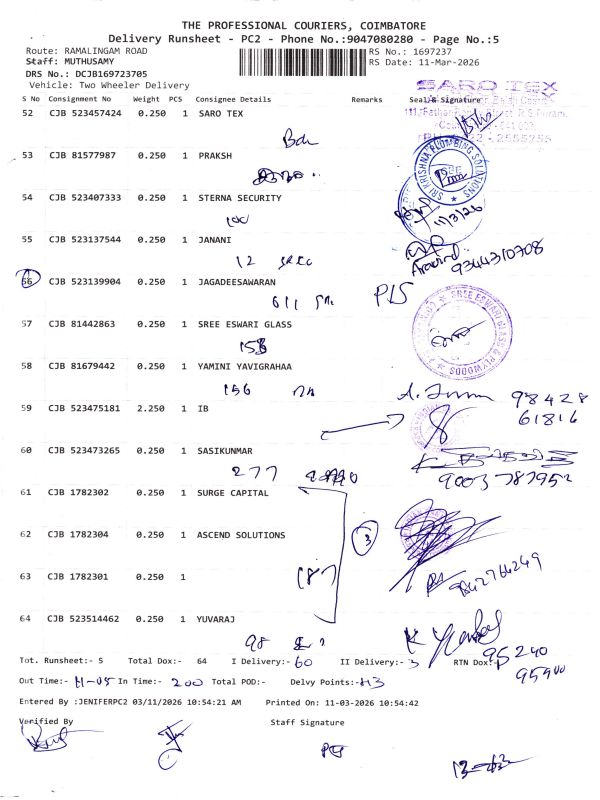 THE PROFESSIONAL COURIERS, COIMBATORE
Delivery Runsheet - PC2 - Phone No.:9047080280 - Page No.:5
Route: RAMALINGAM ROAD
RS No.: 1697237
Staff: MUTHUSAMY
RS Date: 11-Mar-2026
DRS No.: DCJB169723705
Vehicle: Two Wheeler Delivery
S No Consignment No Weight PCS Consignee Details Remarks Seal & Signature
SARO TEX
52 CJB 523457424 0.250 1 SARO TEX
53 CJB 81577987 0.250 1 PRAKSH
SRI KRISHNA PLUMBING SOLUTIONS
54 CJB 523407333 0.250 1 STERNA SECURITY
100
11/3/26
55 CJB 523137544 0.250 1 JANANI
12
Aravind 9344310708
56 CJB 523139904 0.250 1 JAGADEESAWARAN
611
P/S
57 CJB 81442863 0.250 1 SREE ESWARI GLASS
SREE ESWARI GLASS & PLYWOODS
58 CJB 81679442 0.250 1 YAMINI YAVIGRAHAA
156
98428
61816
59 CJB 523475181 2.250 1 IB
60 CJB 523473265 0.250 1 SASIKUNMAR
277
9003787952
61 CJB 1782302 0.250 1 SURGE CAPITAL
62 CJB 1782304 0.250 1 ASCEND SOLUTIONS
3
63 CJB 1782301 0.250 1
187
9842764249
64 CJB 523514462 0.250 1 YUVARAJ
98
95240
95900
Tot. Runsheet:- 5 Total Dox:- 64 I Delivery:- 60 II Delivery:- 3 RTN Dox:-
Out Time:- 11-05 In Time:- 200 Total POD:- Delvy Points:- 43
Entered By :JENIFERPC2 03/11/2026 10:54:21 AM Printed On: 11-03-2026 10:54:42
Verified By Staff Signature